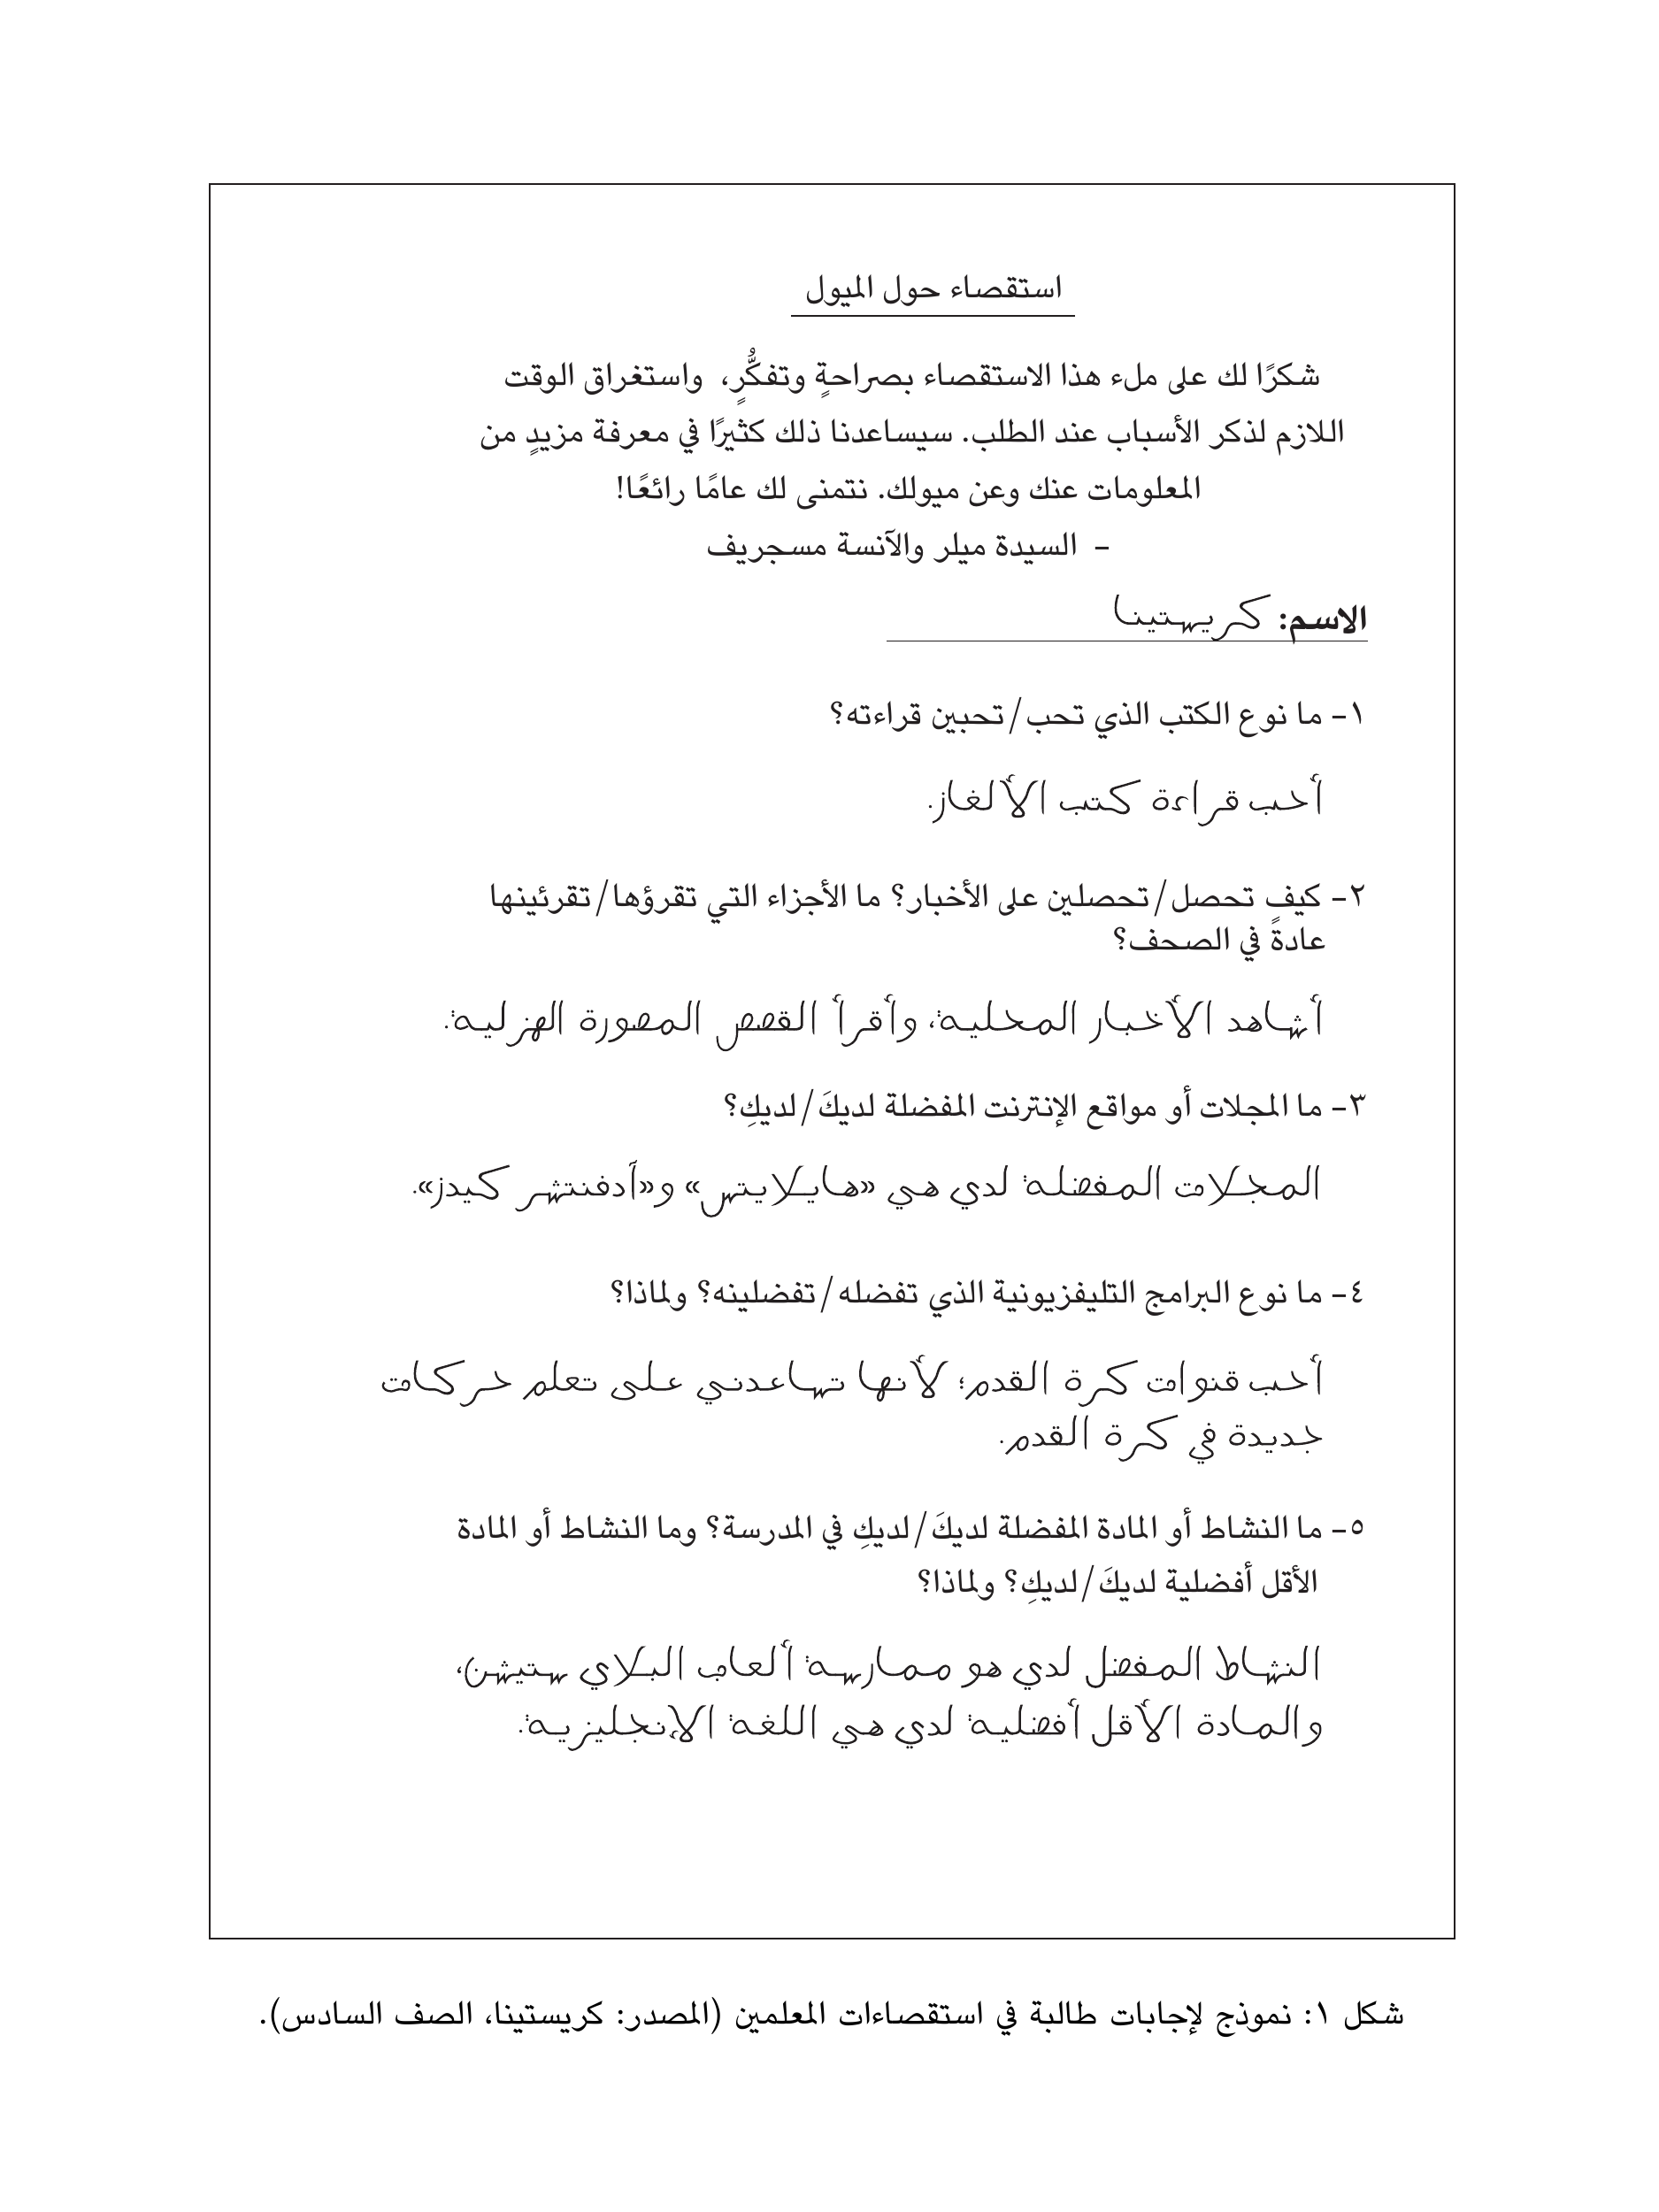 استقصاء حول الميول
شكرًا لك على ملء هذا الاستقصاء بصراحةٍ وتفكُّرٍ، واستغراق الوقت
اللازم لذكر الأسباب عند الطلب. سيساعدنا ذلك كثيرًا في معرفة مزيدٍ من
المعلومات عنك وعن ميولك. نتمنى لك عامًا رائعًا!
– السيدة ميلر والآنسة مسجريف
الاسم: كريستينا
١– ما نوع الكتب الذي تحب/تحبين قراءته؟
أحب قراءة كتب الألغاز.
٢– كيف تحصل/تحصلين على الأخبار؟ ما الأجزاء التي تقرؤها/تقرئينها
عادةً في الصحف؟
أشاهد الأخبار المحلية، وأقرأ القصص المصورة الهزلية.
٣– ما المجلات أو مواقع الإنترنت المفضلة لديكَ/لديكِ؟
المجلات المفضلة لدي هي «هايلايتس» و«أدفنتشر كيدز».
٤– ما نوع البرامج التليفزيونية الذي تفضله/تفضلينه؟ ولماذا؟
أحب قنوات كرة القدم؛ لأنها تساعدني على تعلم حركات
جديدة في كرة القدم.
٥– ما النشاط أو المادة المفضلة لديكَ/لديكِ في المدرسة؟ وما النشاط أو المادة
الأقل أفضلية لديكَ/لديكِ؟ ولماذا؟
النشاط المفضل لدي هو ممارسة ألعاب البلاي ستيشن،
والمادة الأقل أفضلية لدي هي اللغة الإنجليزية.
شكل ١: نموذج لإجابات طالبة في استقصاءات المعلمين (المصدر: كريستينا، الصف السادس).